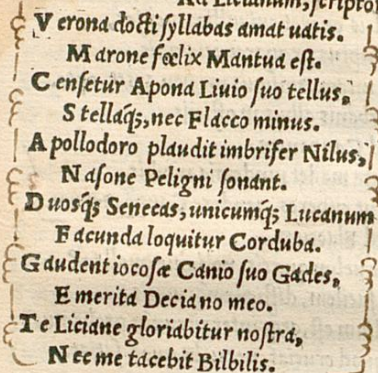 Ad Licianum, scripto
Verona docti syllabas amat uatis.
Marone fœlix Mantua est.
Censetur Apona Liuio suo tellus,
Stellaq́ꝫ, nec Flacco minus.
Apollodoro plaudit imbrifer Nilus,
Nasone Peligni sonant.
Duosq́ꝫ Senecas, unicumq́ꝫ Lucanum
Facunda loquitur Corduba.
Gaudent iocosæ Canio suo Gades,
Emerita Deciano meo.
Te Liciane gloriabitur nostra,
Nec me tacebit Bilbilis.